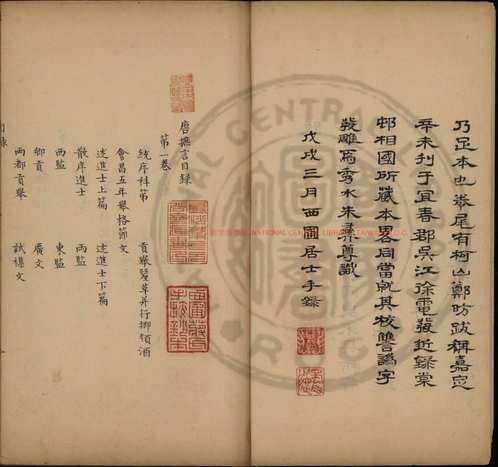 乃足本也卷尾有柯山鄭昉跋稱嘉定
辛未刊于宜春郡吳江徐電發近録棠
邨相國所藏本畧同當就其校讐譌字
發雕焉秀水朱彝尊識
戊戌三月西圃居士手錄
唐摭言目録
第一卷
統序科第 貢舉釐革并行鄉飲酒
會昌五年舉格節文
述進士上篇 述進士下篇
散序進士 兩監
西監 東監
鄉貢 廣文
兩都貢舉 試雜文